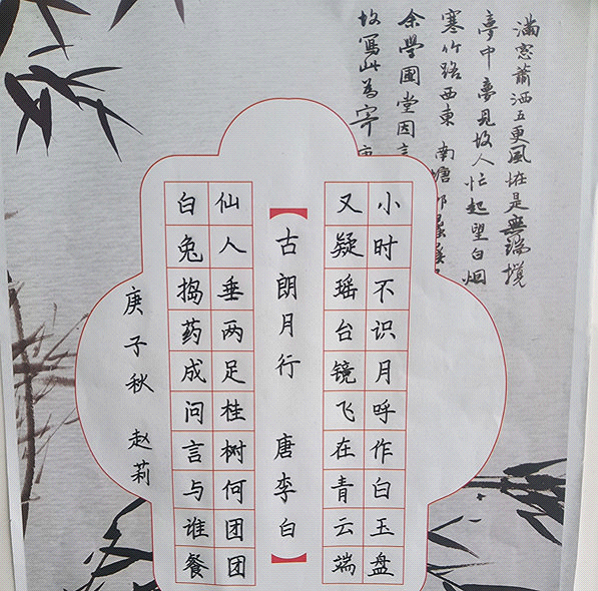 滿窓蕭洒五更風恠是無端攪
夢中夢見故人忙起望白烟
寒竹路西東 南塘
余學圃堂因言
故寫此為寄
小时不识月呼作白玉盘
又疑瑶台镜飞在青云端
【古朗月行 唐李白】
仙人垂两足桂树何团团
白兔捣药成问言与谁餐
庚子秋 赵莉